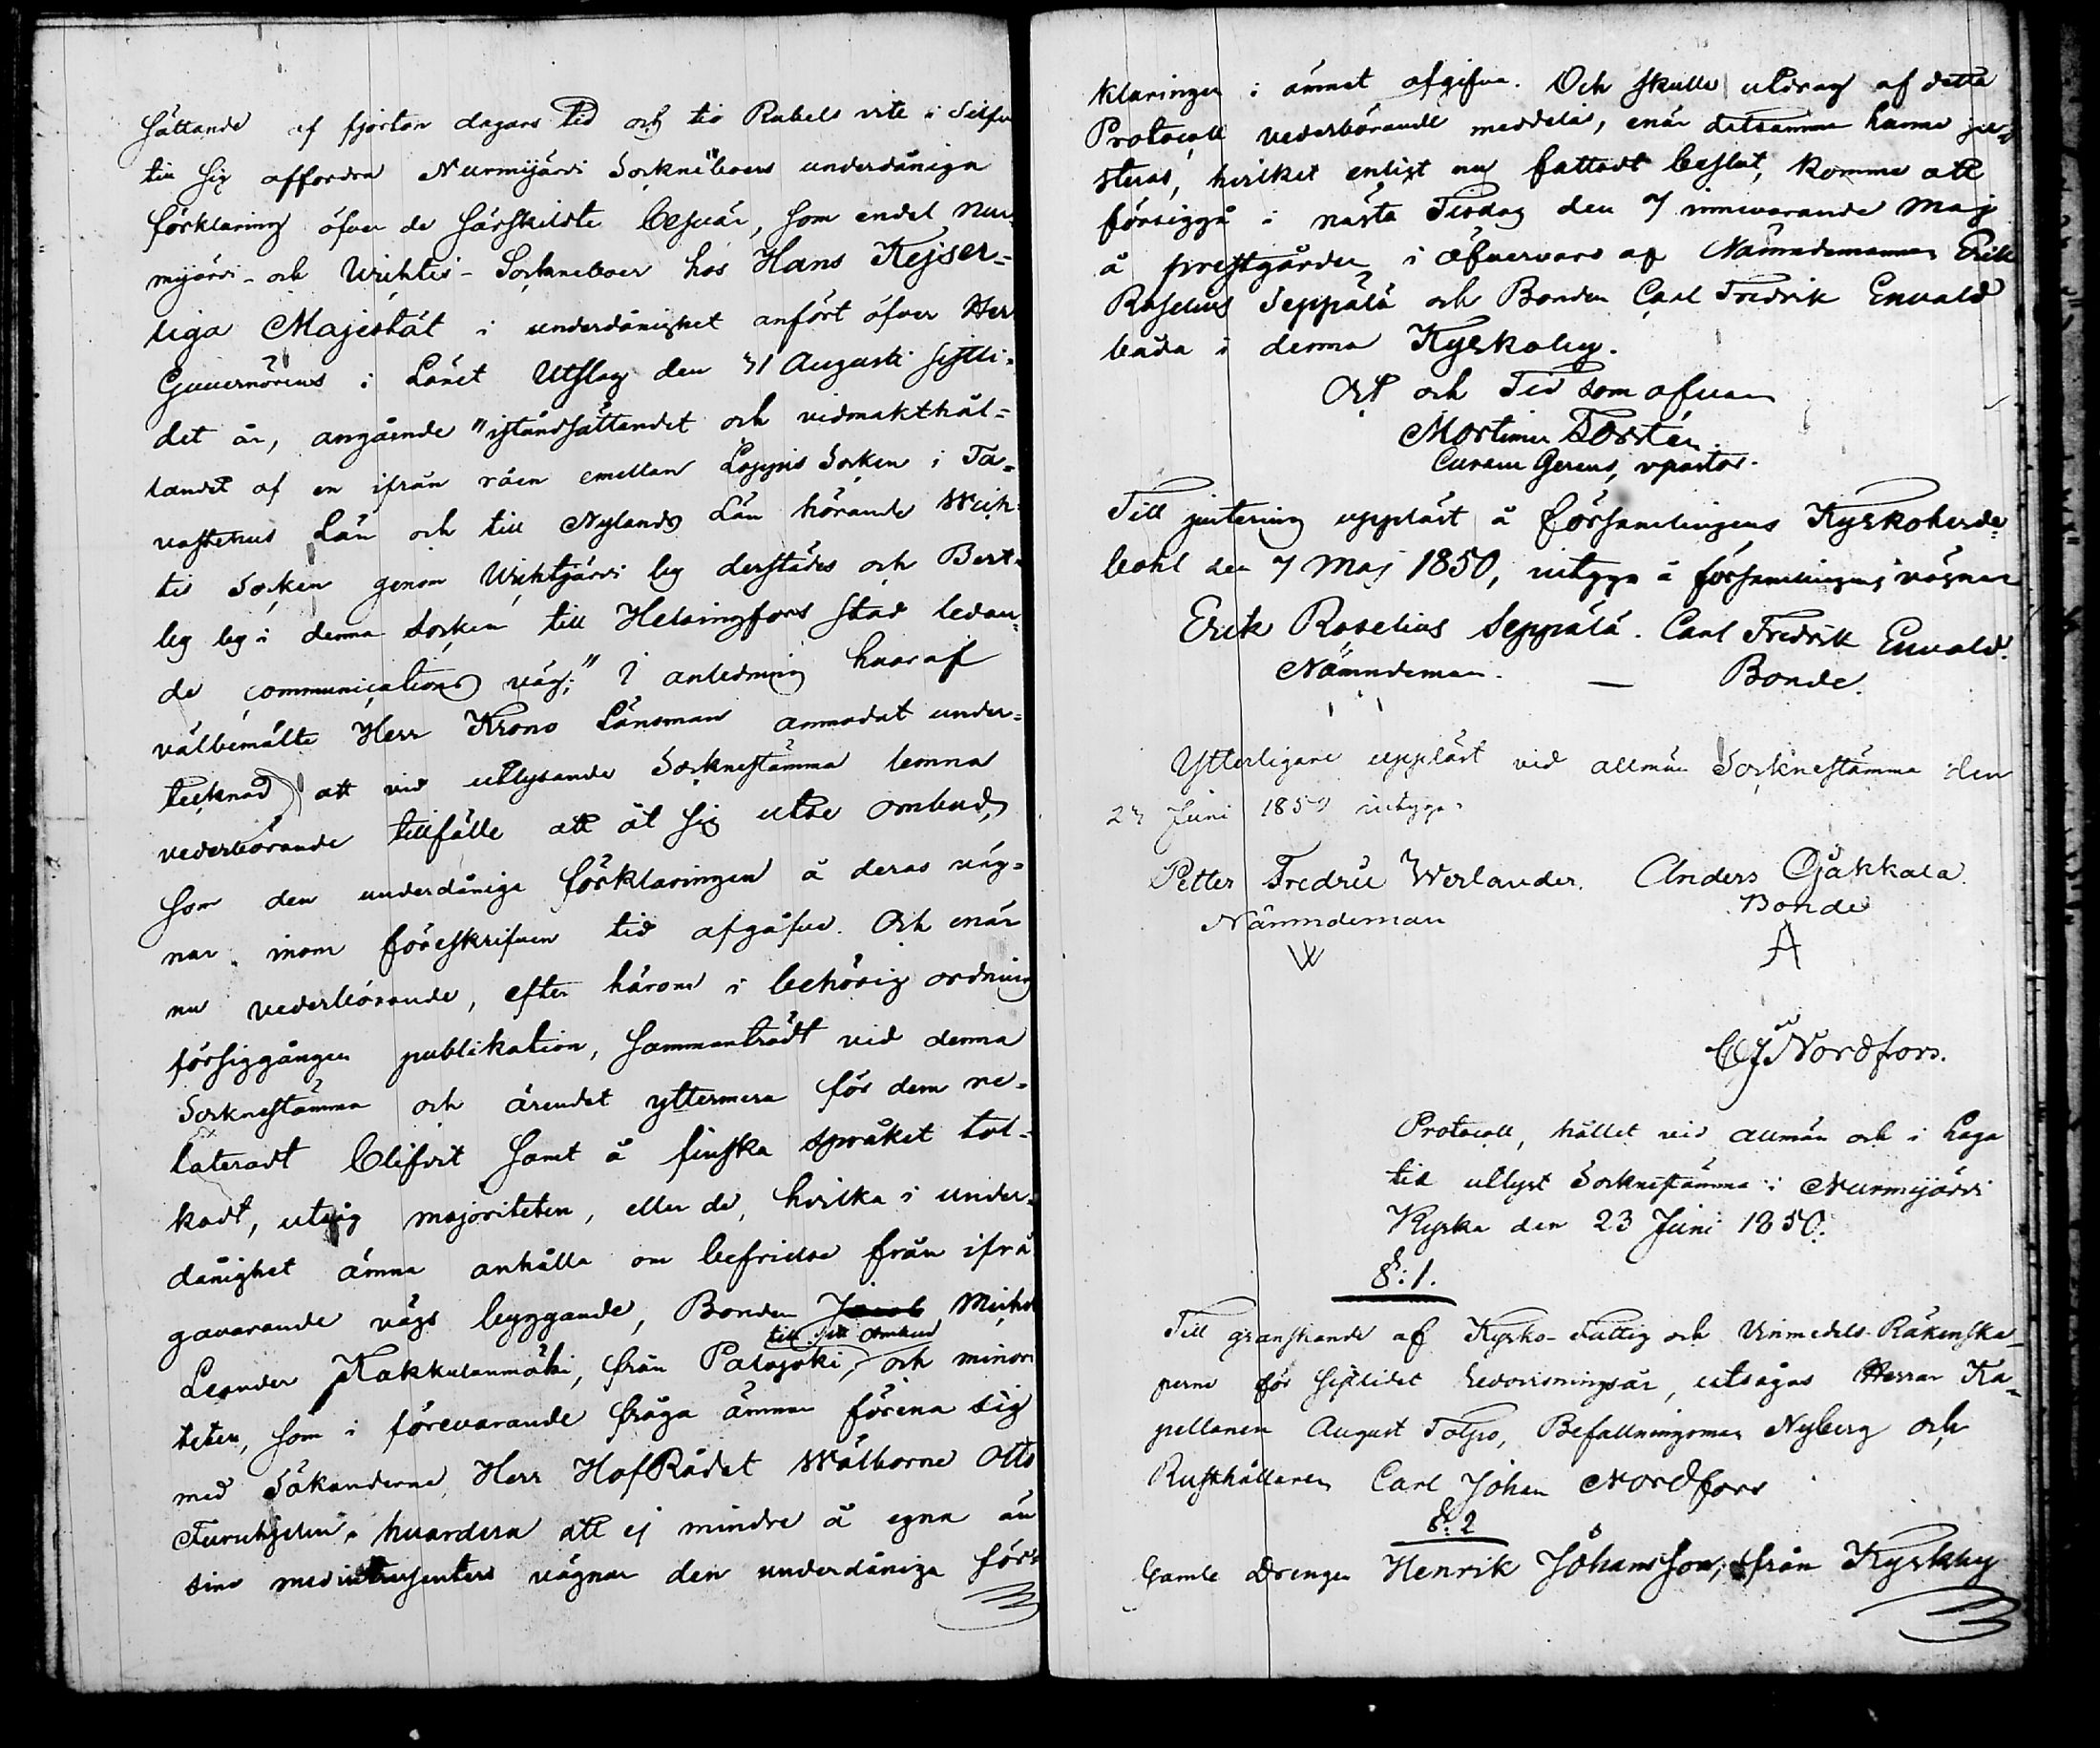 sättande af fjorton dagars tid och tio Rubels vite i Silfver
till sig affordra Nurmijärvi Sockneboers underdåniga
förklaring öfver de särskildte besvär, som endel Nur-
mijärvi- och Wichtis- Sockneboer hos Hans Kejser-
liga Majestät i underdånighet anfört öfver Herr
Guvernörens i Länet Utslag den 31 Augusti sistli-
det år, angående "iståndsättandet och vidmakthål-
landet af en ifrån råen emellan Loppis Socken i Ta-
vastehus Län och till Nylands Län hörande Wich-
tis Socken genom Wichtijärvi by derstädes och Bert-
by by i denna Socken till Helsingfors stad ledan-
de communications väg;" I anledning hvaraf
välbemälte Herr Krono Länsman anmodat under-
tecknad att vid utlysande Socknestämma lemna
vederbörande tillfälle att åt sig utse ombud,
som den underdåniga förklaringen å deras väg-
nar inom föreskrifven tid afgåfve. Och enär
nu vederbörande, efter härom i behörig ordning
försiggången publikation, sammanträdt vid denna
Socknestämma och ärendet yttermera för dem re-
lateradt blifvit samt å finska språket tol-
kadt, utsåg majoriteten, eller de, hvilka i under-
dånighet ämna anhålla om befrielse från ifrå
gavarande vägs byggande, Bonden Jacob Michel
till sitt Ombud
Leander Kakkulanmäki, från Palojoki, och minori
teten, som i förevarande fråga ämnar förena sig
med Sökanderne, Herr HofRådet Wälborne Otto
Furuhjelm, hvardera att ej mindre å egna än
sine medintressenters vägnar den underdåniga för-
klaringen i ämnet afgifva. Och skulle utdrag af detta
Protocoll vederbörande meddelas, enär detsamma hunne ju-
steras, hvilket enligt nu fattadt beslut, komme att
försiggå i nästa Tisdag den 7 innevarande Maj
å prestgården i öfvervaro af Nämndemannen Erik
Roselius Seppälä och Bonden Carl Fredrik Envald
båda i denna Kyrkoby.
Ort och Tid som ofvan
Mortimer Forstén.
Curam Gerens, vpastor.
Till justering uppläst å församlingens Kyrkoherde-
bohl den 7 Maj 1850, intyga å församlingens vägnar
Erik Roselius Seppälä. Carl Fredrik Envald.
Nämndeman. — Bonde.
Ytterligare uppläst vid allmän Socknestämma den
23 Juni 1850 intyga:
Petter Fredric Werlander. Anders Ojakkala.
Nämndeman Bonde
W A
C J Nordfors.
Protocoll, hållet vid allmän och i Laga
tid utlyst Socknestämma i Nurmijärvi
Kyrka den 23 Juni 1850.
§: 1.
Till granskande af Kyrko- Fattig och Vinmedels Räkenska-
perne för sistlidet Redovisningsår, utsågos Herrar Ka-
pellanen August Tolpo, Befallningsman Nyberg och
Rusthållaren Carl Johan Nordfors
§: 2
Gamle Drengen Henrik Johansson, från Kyrkby